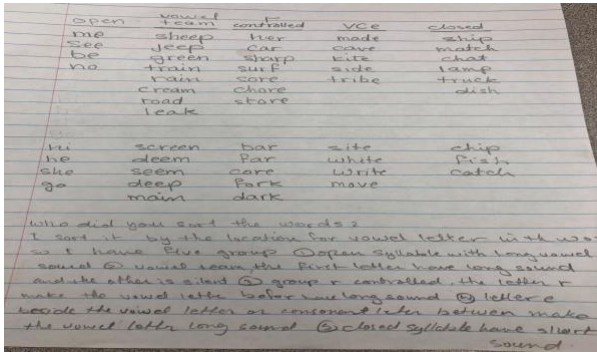 open vowel team r controlled VCe closed
me sheep her made ship
see jeep car cave match
be green sharp kite chat
no train surf side lamp
rain sore tribe truck
cream chore dish
road store
leak
hi screen bar site chip
he deem far white fish
she seem care write catch
go deep fork move
main dark
who did you sort the words?
I sort it by the location for vowel letter in the wo
so I have five group ① open syllable with long vowel
sound ② vowel team, the first letter have long sound
and the other is silent ③ group r controlled, the letter r
make the vowel lette befor have long sound ④ letter e
beside the vowel letter or consonant leter betwen make
the vowel lettr long sound ⑤ closed syllable have short
sound.